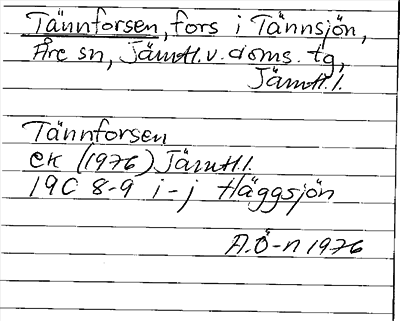 Tännforsen, fors i Tännsjön,
Åre sn, Jämtl. v. doms. tg,
Jämtl. l.
Tännforsen
ek (1976) Jämtl. l.
19C 8-9 i-j Häggsjön
A.Ö-n 1976